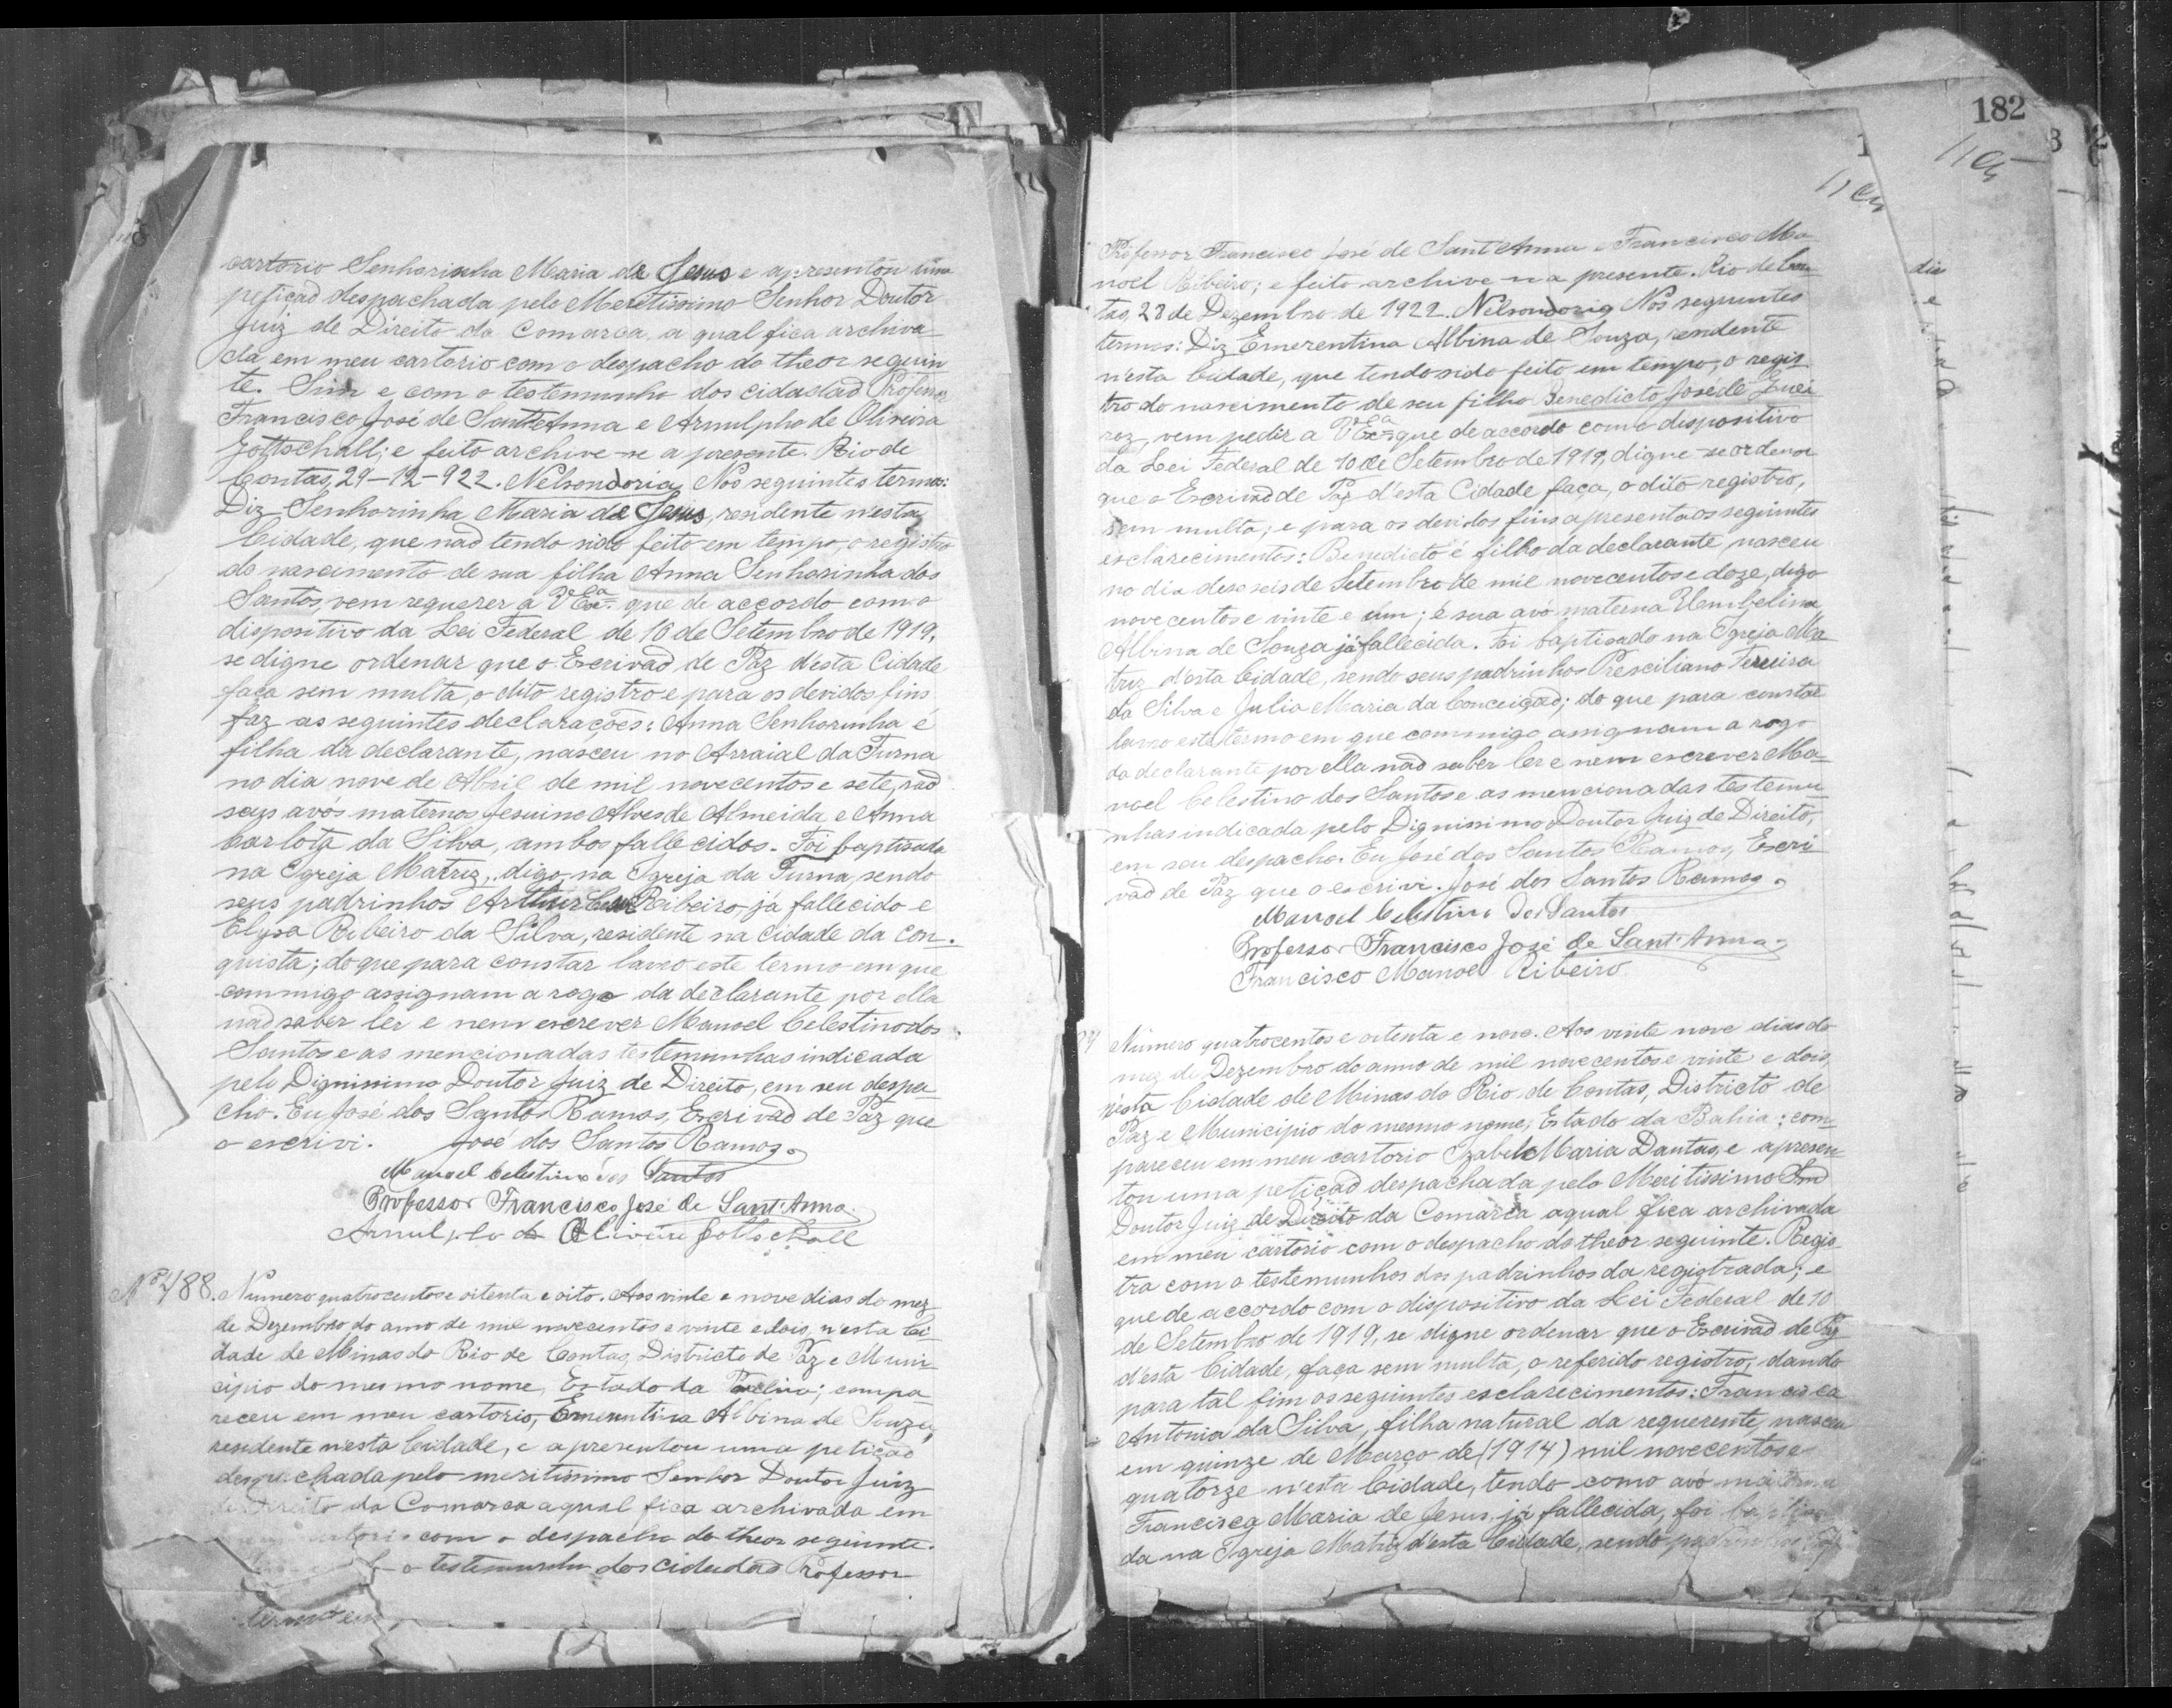 cartorio Senhorinha Maria de Jesus e apresentou uma
petiçaõ despachada pelo Meretissimo Senhor Doutor
Juiz de Direito da Comarca, a qual fica archiva
da em meu cartorio com o despacho do theor seguin
te. Sim e com o testemunho dos cidadaõ Profess
Francisco José de Sant'Anna e Arnulpho de Oliveira
Gottschall; e feito archive-se a presente. Rio de
Contas, 29-12-922. Nelson doria, Nos seguintes termos:
Diz Senhorinha Maria de Jesus, residente n'esta
Cidade, que naõ tendo sido feito em tempo, o registro
do nascimento de sua filha Anna Senhorinha dos
Santos, vem requerer a V Exª. que de accordo com o
dispositivo da Lei Federal de 10 de Setembro de 1919,
se digne ordenar que o Escrivaõ de Paz d'esta Cidade
faça sem multa, o dito registro e para os devidos fins
faz as seguintes declarações: Anna Senhorinha é
filha da declarante, nasceu no Arraial da Furna
no dia nove de Abril de mil novecentos e sete, saõ
seus avós maternos Jesuino Alves de Almeida e Anna
Carlota da Silva, ambos fallecidos. Foi baptisada
na Igreja Matriz, digo, na Igreja da Furna, sendo
seus padrinhos Arthur Ribeiro, já fallecido e
Elysa Ribeiro da Silva, residente na Cidade da Con-
quista; do que para constar lavro este termo em que
commigo assignam a rogo da declarante por ella
naõ saber ler e nem escrever Manoel Celestino dos
Santos e as mencionadas testemunhas indicada
pelo Dignissimo Doutor Juiz de Direito, em seu despa
cho. Eu José dos Santos Ramos, Escrivaõ de Paz que
o escrivi. José dos Santos Ramos.
Manoel Celestino dos Santos
Professor Francisco José de Sant'Anna.
Arnulpho de Oliveira Gottschall
Nº 488. Numero quatrocentos e oitenta e oito. Aos vinte e nove dias do mez
de Dezembro do anno de mil novecentos e vinte e dois, n'esta Ci
dade de Minas do Rio de Contas, Districto de Paz e Muni-
cipio do mesmo nome, Estado da Bahia; compa
receu em meu cartorio, Emerentina Albina de Souza,
residente n'esta Cidade, e apresentou uma petiçaõ
despachada pelo meritissimo Senhor Doutor Juiz
de Direito da Comarca a qual fica archivada em
cartorio com o despacho do theor seguinte.
o testemunho dos cidadaõ Professor
182
Professor Francisco José de Sant'Anna e Francisco Ma
noel Ribeiro; e feito archive-se a presente. Rio de Con
tas, 28 de Dezembro de 1922. Nelson doria, Nos seguintes
termos: Diz Emerentina Albina de Souza, residente
n'esta Cidade, que tendo sido feito em tempo, o regis
tro do nascimento de seu filho Benedicto José de Quei
roz, vem pedir a V Exª que de accordo com o dispositivo
da Lei Federal de 10 de Setembro de 1919, digne-se ordenar
que o Escrivaõ de Paz d'esta Cidade faça, o dito registro,
sem multa; e para os devidos fins apresenta os seguintes
esclarecimentos: Benedicto é filho da declarante, nasceu
no dia deseseis de Setembro de mil novecentos e doze, digo
novecentos e vinte e um; é sua avó materna Umbelina
Albina de Souza já fallecida. Foi baptisado na Igreja Ma
triz d'esta Cidade, sendo seus padrinhos Presciliano Ferreira
da Silva e Julia Maria da Conceiçaõ; do que para constar
lavro este termo em que commigo assignam a rogo
da declarante por ella naõ saber ler e nem escrever Ma-
noel Celestino dos Santos e as mencionadas testemu
nhas indicada pelo Dignissimo Doutor Juiz de Direito,
em seu despacho. Eu José dos Santos Ramos, Escri
vaõ de Paz que o escrivi. José dos Santos Ramos.
Manoel Celestino dos Santos
Professor Francisco José de Sant'Anna.
Francisco Manoel Ribeiro
Numero quatrocentos e oitenta e nove. Aos vinte nove dias do
mez de Dezembro do anno de mil novecentos e vinte e dois,
n'esta Cidade de Minas do Rio de Contas, Districto de
Paz e Municipio do mesmo nome, Estado da Bahia: com-
pareceu em meu cartorio Izabel Maria Dantas, e apresen
tou uma petiçaõ despachada pelo Meritissimo Snr
Doutor Juiz de Direito da Comarca aqual fica archivada
em meu cartorio com o despacho do theor seguinte. Regis-
tra com o testemunhos dos padrinhos da registrada; e
que de accordo com o dispositivo da Lei Federal de 10
de Setembro de 1919, se digne ordenar que o Escrivaõ de Paz
d'esta Cidade, faça sem multa, o referido registro, dando
para tal fim os seguintes esclarecimentos: Francisca
Antonia da Silva, filha natural da requerente, nasceu
em quinze de Março de (1914) mil novecentos e
quatorze n'esta Cidade, tendo como avó materna
Francisca Maria de Jesus, já fallecida, foi baptisa
da na Igreja Matriz d'esta Cidade, sendo padrinhos